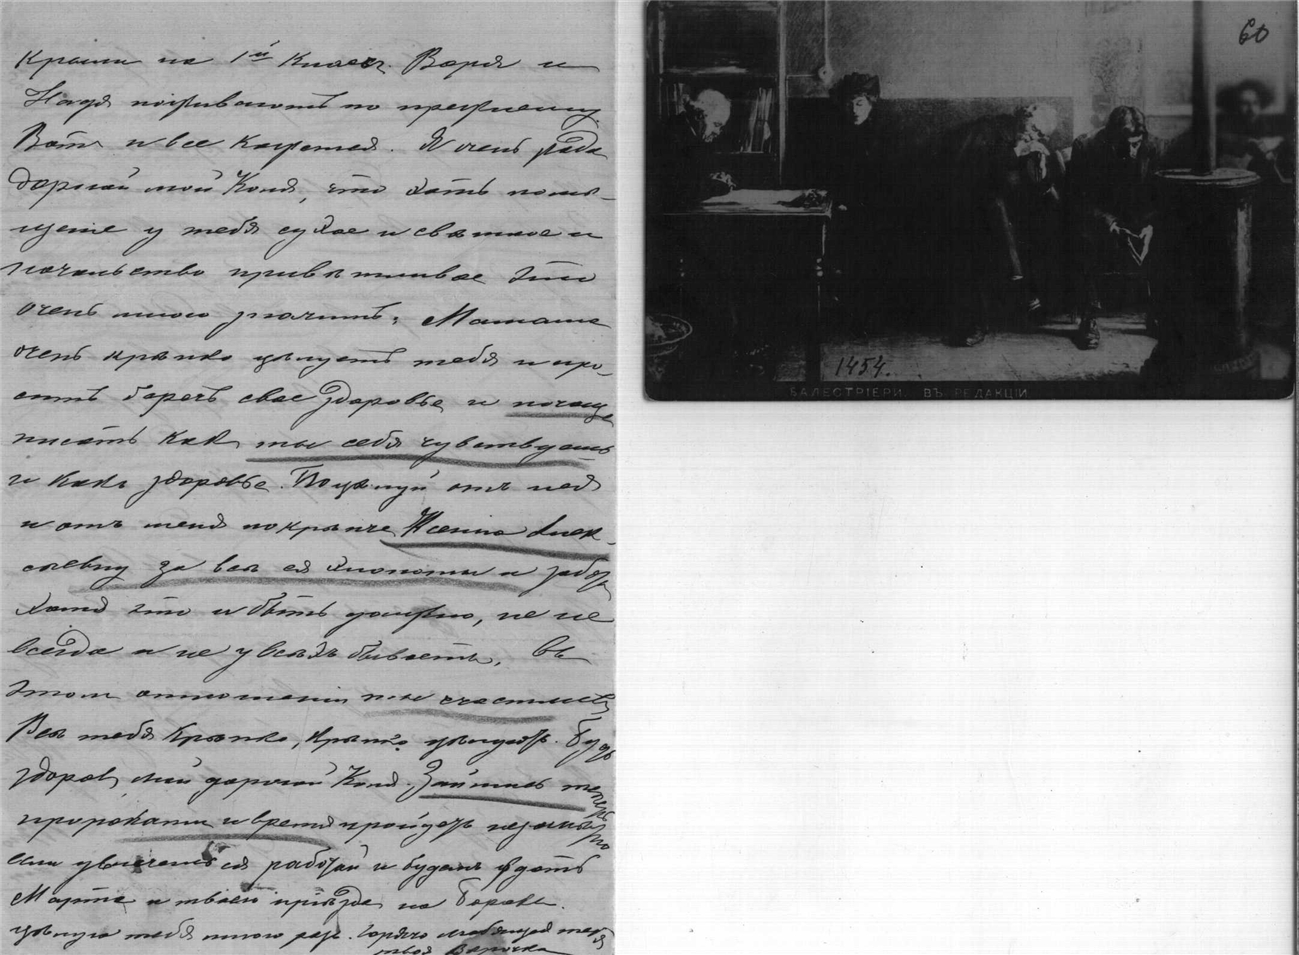 крыши на 1й Класс. Варя и
Надя поживаютъ по прежнему.
Вотъ и все кажется. Я очень рада
дорогой мой Коля, что хоть помѣ-
щеніе у тебя сухое и свѣтлое и
начальство привѣтливое это
очень много значитъ. Мамаша
очень крѣпко цѣлуетъ тебя и про-
ситъ беречь свое здоровье и почаще
писать какъ ты себя чувствуешь
и какъ здоровье. Поцѣлуй отъ нея
и отъ меня покрѣпче Ксенію Алек-
сѣевну за всѣ ея хлопоты и заботы
хотя это и быть должно, но не
всегда и не у всѣхъ бываетъ. Въ
этомъ отношеніи ты счастливъ
Всѣ тебя крѣпко, крѣпко цѣлуютъ. Будь
здоровъ мой дорогой Коля. Займись теперь
пророками и время пройдетъ незамѣтно
если увлечешься работой и будемъ ждать
Марта и твоего пріѣзда
цѣлую тебя много разъ. Горячо любящая тебя
твоя Варочка
60
1454.
БАЛЕСТРІЕРИ. ВЪ РЕДАКЦІИ